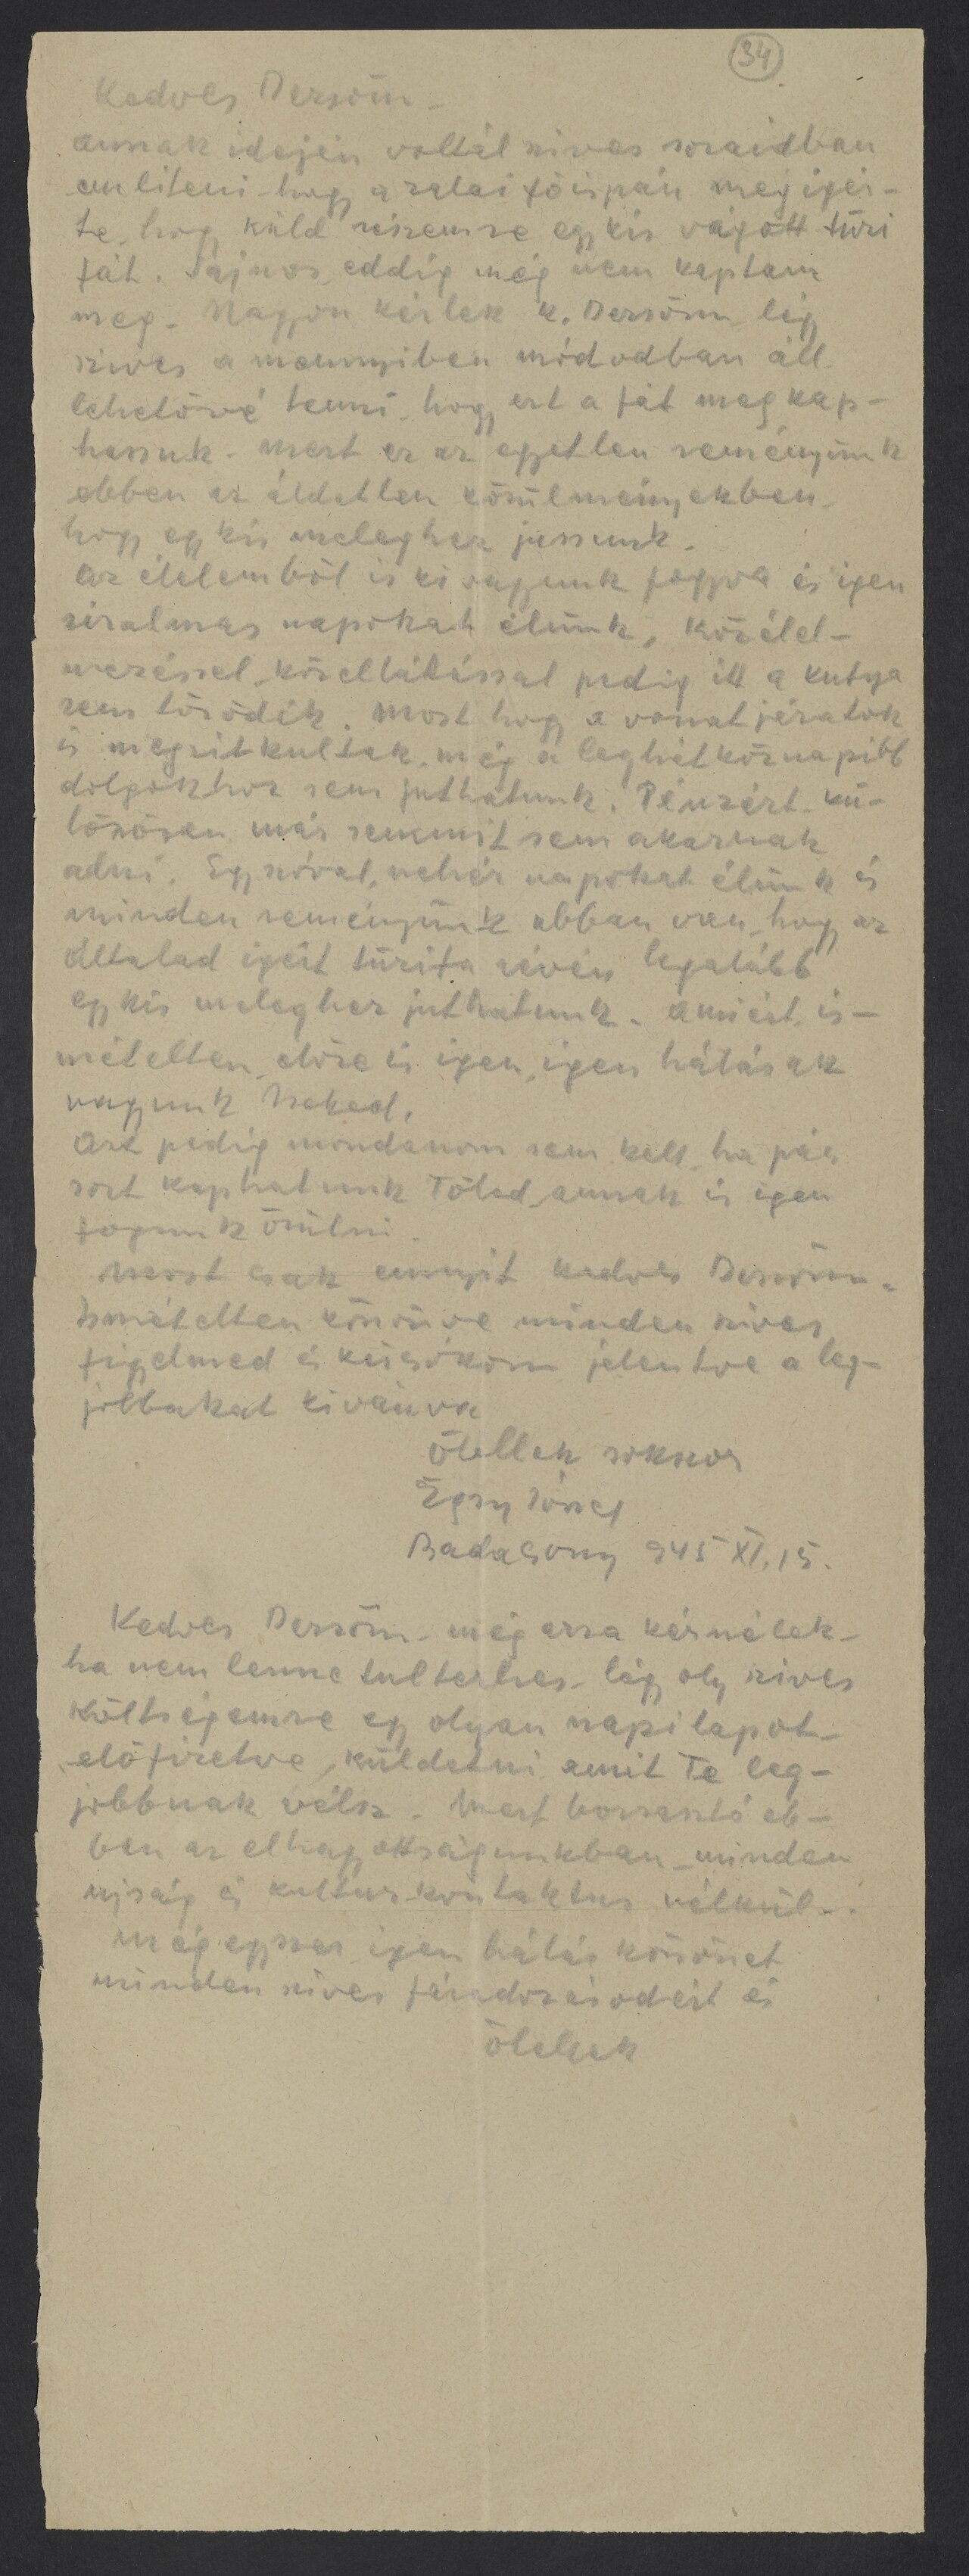 34
Kedves Dezsőm -
annak idején voltál szives soraidban
emliteni - hogy a zalai főispán megigér-
te, hogy küld részemre egy kis vágott tüzi
fát. Sajnos eddig még nem kaptam
meg - Nagyon kérlek k. Dezsőm légy
szives a mennyiben módodban áll
lehetővé tenni, hogy ezt a fát megkap-
hassuk - mert ez az egyetlen reményünk
ebben az áldatlan körülményekben -
hogy egy kis meleghez jussunk -
Az élelemből is ki vagyunk fogyva és igen
siralmas napokat élünk, Közélel-
mezéssel, közellátással pedig itt a kutya
sem törödik. Most hogy a vonatjáratok
is megritkultak, még a leghétköznapibb
dolgokhoz sem juthatunk. Pénzért - kü-
lönösen már semmit sem akarnak
adni. Egyszóval, nehéz napokat élünk és
minden reményünk abban van, hogy az
általad igért tüzifa révén legalább
egy kis meleghez juthatunk - amiért is-
mételten előre is igen, igen hálásak
vagyunk Neked.
Azt pedig mondanom sem kell, ha pár
sort kaphatunk Tőled annak is igen
fogunk örülni.
Most csak ennyit kedves Dezsőm -
Ismételten köszönve minden szives
figyelmed és kézcsókom jelentve a leg-
jobbakat kivánva
Ölellek sokszor
Egry József
Badacsony 945 XI. 15.
Kedves Dezsőm - még arra kérnélek -
ha nem lenne tulterhes - légy oly szives
költségemre egy olyan napilapot -
előfizetve, küldetni amit Te leg-
jobbnak vélsz - Mert borzasztó eb-
ben az elhagyottságunkban - minden
ujság és kultur-kontaktus nélkül - .
Mégegyszer igen hálás köszönet
minden szives fáradozásodért és
ölellek